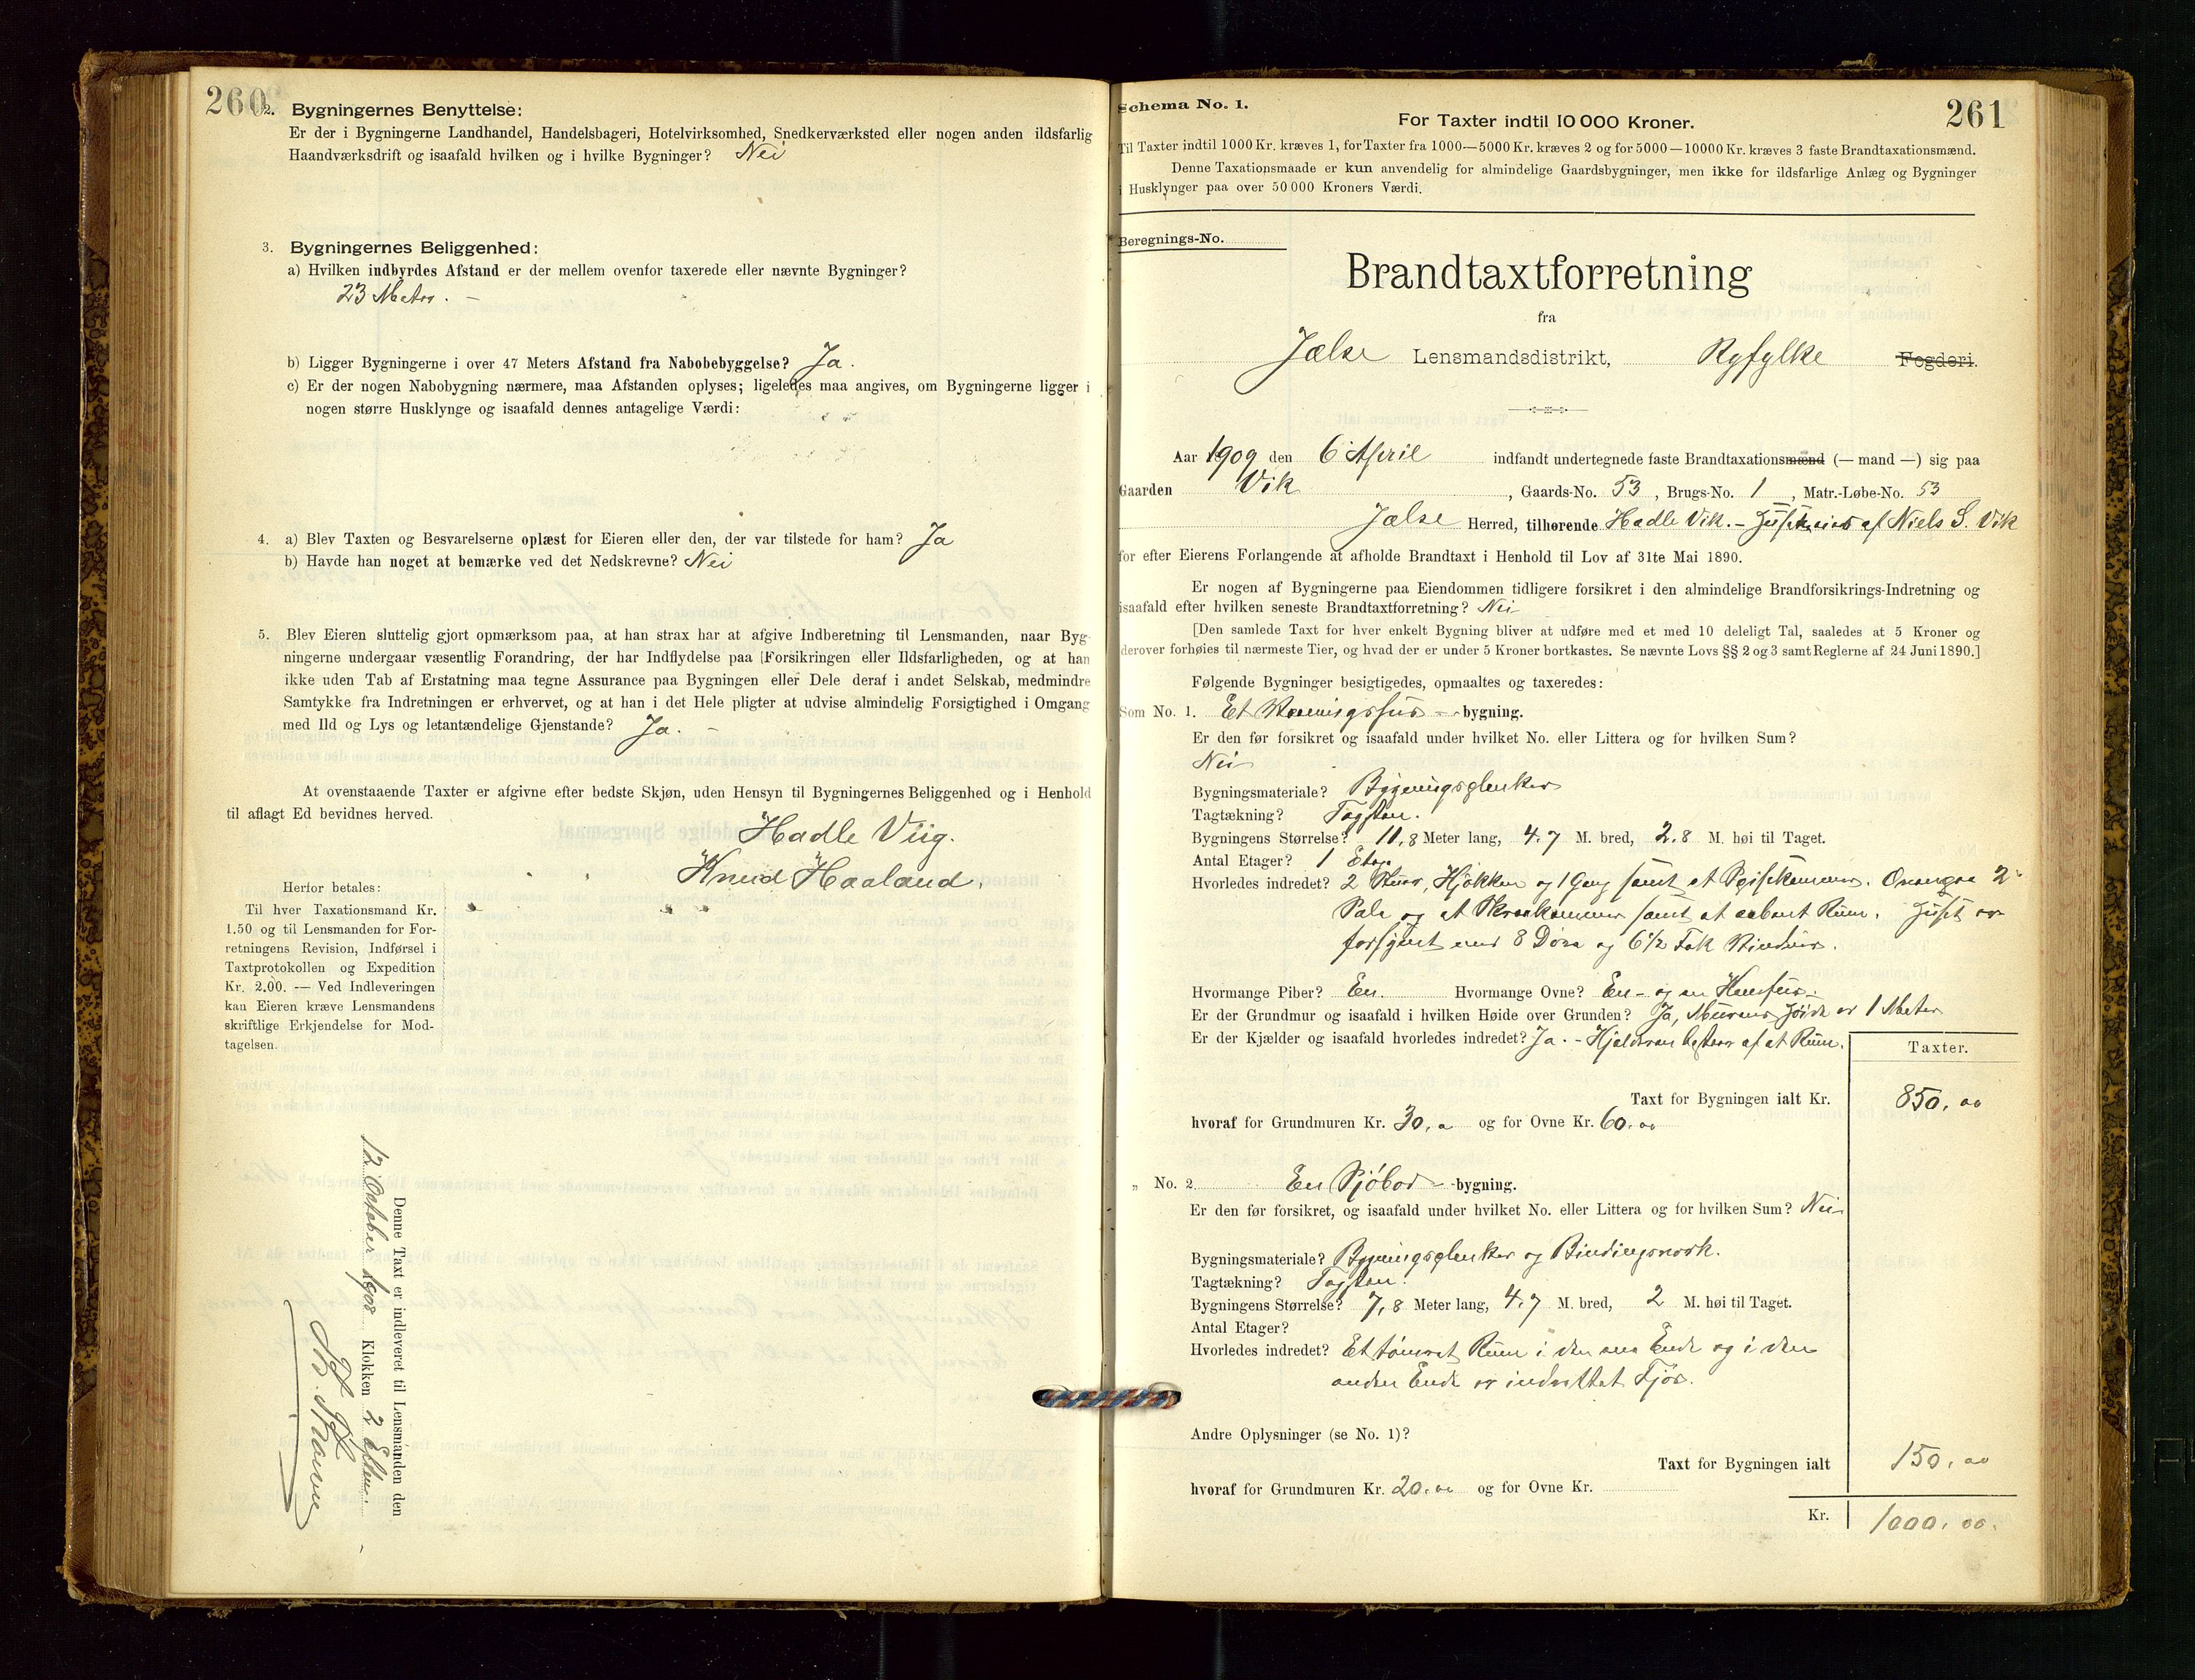 260
2. Bygningernes Benyttelse:
Er der i Bygningerne Landhandel, Handelsbageri, Hotelvirksomhed, Snedkerværksted eller nogen anden ildsfarlig
Haandværksdrift og isaafald hvilken og i hvilke Bygninger? Nei
3. Bygningernes Beliggenhed:
a) Hvilken indbyrdes Afstand er der mellem ovenfor taxerede eller nævnte Bygninger?
23 Meter. -
b) Ligger Bygningerne i over 47 Meters Afstand fra Nabobebyggelse? Ja.
c) Er der nogen Nabobygning nærmere, maa Afstanden oplyses; ligeledes maa angives, om Bygningerne ligger i
nogen større Husklynge og isaafald dennes antagelige Værdi:
4. a) Blev Taxten og Besvarelserne oplæst for Eieren eller den, der var tilstede for ham? Ja
b) Havde han noget at bemærke ved det Nedskrevne? Nei
5. Blev Eieren sluttelig gjort opmærksom paa, at han strax har at afgive Indberetning til Lensmanden, naar Byg-
ningerne undergaar væsentlig Forandring, der har Indflydelse paa [Forsikringen eller Ildsfarligheden, og at han
ikke uden Tab af Erstatning maa tegne Assurance paa Bygningen eller Dele deraf i andet Selskab, medmindre
Samtykke fra Indretningen er erhvervet, og at han i det Hele pligter at udvise almindelig Forsigtighed i Omgang
med Ild og Lys og letantændelige Gjenstande? Ja. -
At ovenstaaende Taxter er afgivne efter bedste Skjøn, uden Hensyn til Bygningernes Beliggenhed og i Henhold
til aflagt Ed bevidnes herved.
Hadle Viig.
Knud Haaland.
Herfor betales:
Til hver Taxationsmand Kr.
1.50 og til Lensmanden for For-
retningens Revision, Indførsel i
Taxtprotokollen og Expedition
Kr. 2.00. — Ved Indleveringen
kan Eieren kræve Lensmandens
skriftlige Erkjendelse for Mod-
tagelsen.
Denne Taxt er indleveret til Lensmanden den
12 October 1908 Klokken 2 Efterm.
261
Schema No. 1.
For Taxter indtil 10 000 Kroner.
Til Taxter indtil 1000 Kr. kræves 1, for Taxter fra 1000—5000 Kr. kræves 2 og for 5000—10000 Kr. kræves 3 faste Brandtaxationsmænd.
Denne Taxationsmaade er kun anvendelig for almindelige Gaardsbygninger, men ikke for ildsfarlige Anlæg og Bygninger
i Husklynger paa over 50 000 Kroners Værdi.
Beregnings-No.
Brandtaxtforretning
fra
Jælse Lensmandsdistrikt, Ryfylke Fogderi.
Aar 1909 den 6 April indfandt undertegnede faste Brandtaxationsmænd (— mand —) sig paa
Gaarden Vik, Gaards-No. 53, Brugs-No. 1, Matr.-Løbe-No. 53
Jælse Herred, tilhørende Hadle Vik. - af Niels S. Vik
for efter Eierens Forlangende at afholde Brandtaxt i Henhold til Lov af 31te Mai 1890.
Er nogen af Bygningerne paa Eiendommen tidligere forsikret i den almindelige Brandforsikrings-Indretning og
isaafald efter hvilken seneste Brandtaxtforretning? Nei
[Den samlede Taxt for hver enkelt Bygning bliver at udføre med et med 10 deleligt Tal, saaledes at 5 Kroner og
derover forhøies til nærmeste Tier, og hvad der er under 5 Kroner bortkastes. Se nævnte Lovs §§ 2 og 3 samt Reglerne af 24 Juni 1890.]
Følgende Bygninger besigtigedes, opmaaltes og taxeredes:
Som No. 1. Et Vaaningshus - -bygning.
Er den før forsikret og isaafald under hvilket No. eller Littera og for hvilken Sum?
Nei
Bygningsmateriale? Bygningsplanker
Tagtækning? Tagsten.
Bygningens Størrelse? 11,8 Meter lang, 4.7 M. bred, 2.8 M. høi til Taget.
Antal Etager? 1 Etage
Hvorledes indredet? 2 Stuer, Kjøkken og 1 Gang samt et Spisekammer. Ovenpaa 2
Sale og et Skraakammer samt et aabent Rum. Huset er
forsynet med 8 Døre og 6 1/2 Fak Vinduer.
Hvormange Piber? En. Hvormange Ovne? En - og en Komfur.
Er der Grundmur og isaafald i hvilken Høide over Grunden? Ja, Murens Høide er 1 Meter
Er der Kjælder og isaafald hvorledes indredet? Ja. - Kjælderen bestaar af et Rum.
Taxter.
Taxt for Bygningen ialt Kr. 850.00
hvoraf for Grundmuren Kr. 30. og for Ovne Kr. 60.00
„ No. 2 En Sjøbod - -bygning.
Er den før forsikret, og isaafald under hvilket No. eller Littera og for hvilken Sum? Nei
Bygningsmateriale? Bygningsplanker og Bindingsverk.
Tagtækning? Tagsten.
Bygningens Størrelse? 7,8 Meter lang, 4.7 M. bred, 2 M. høi til Taget.
Antal Etager?
Hvorledes indredet? Et tømret Rum i den ene Ende og i den
anden Ende er indrettet Fjøs.
Andre Oplysninger (se No. 1)?
Taxt for Bygningen ialt 150.00
hvoraf for Grundmuren Kr. 20.00 og for Ovne Kr.
Kr. 1000.00.